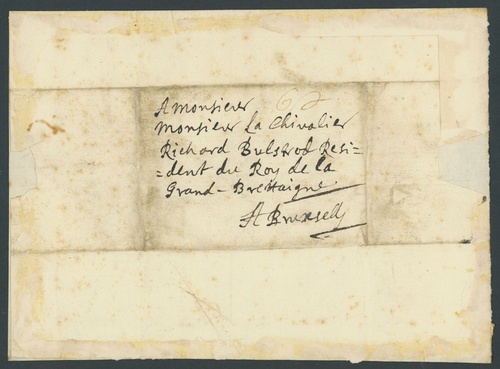 A monsieur
monsieur La Chivalier
Richard Bulstrod Resi=
=dent du Roy de la
Grand-Brettaigne
A Bruxells